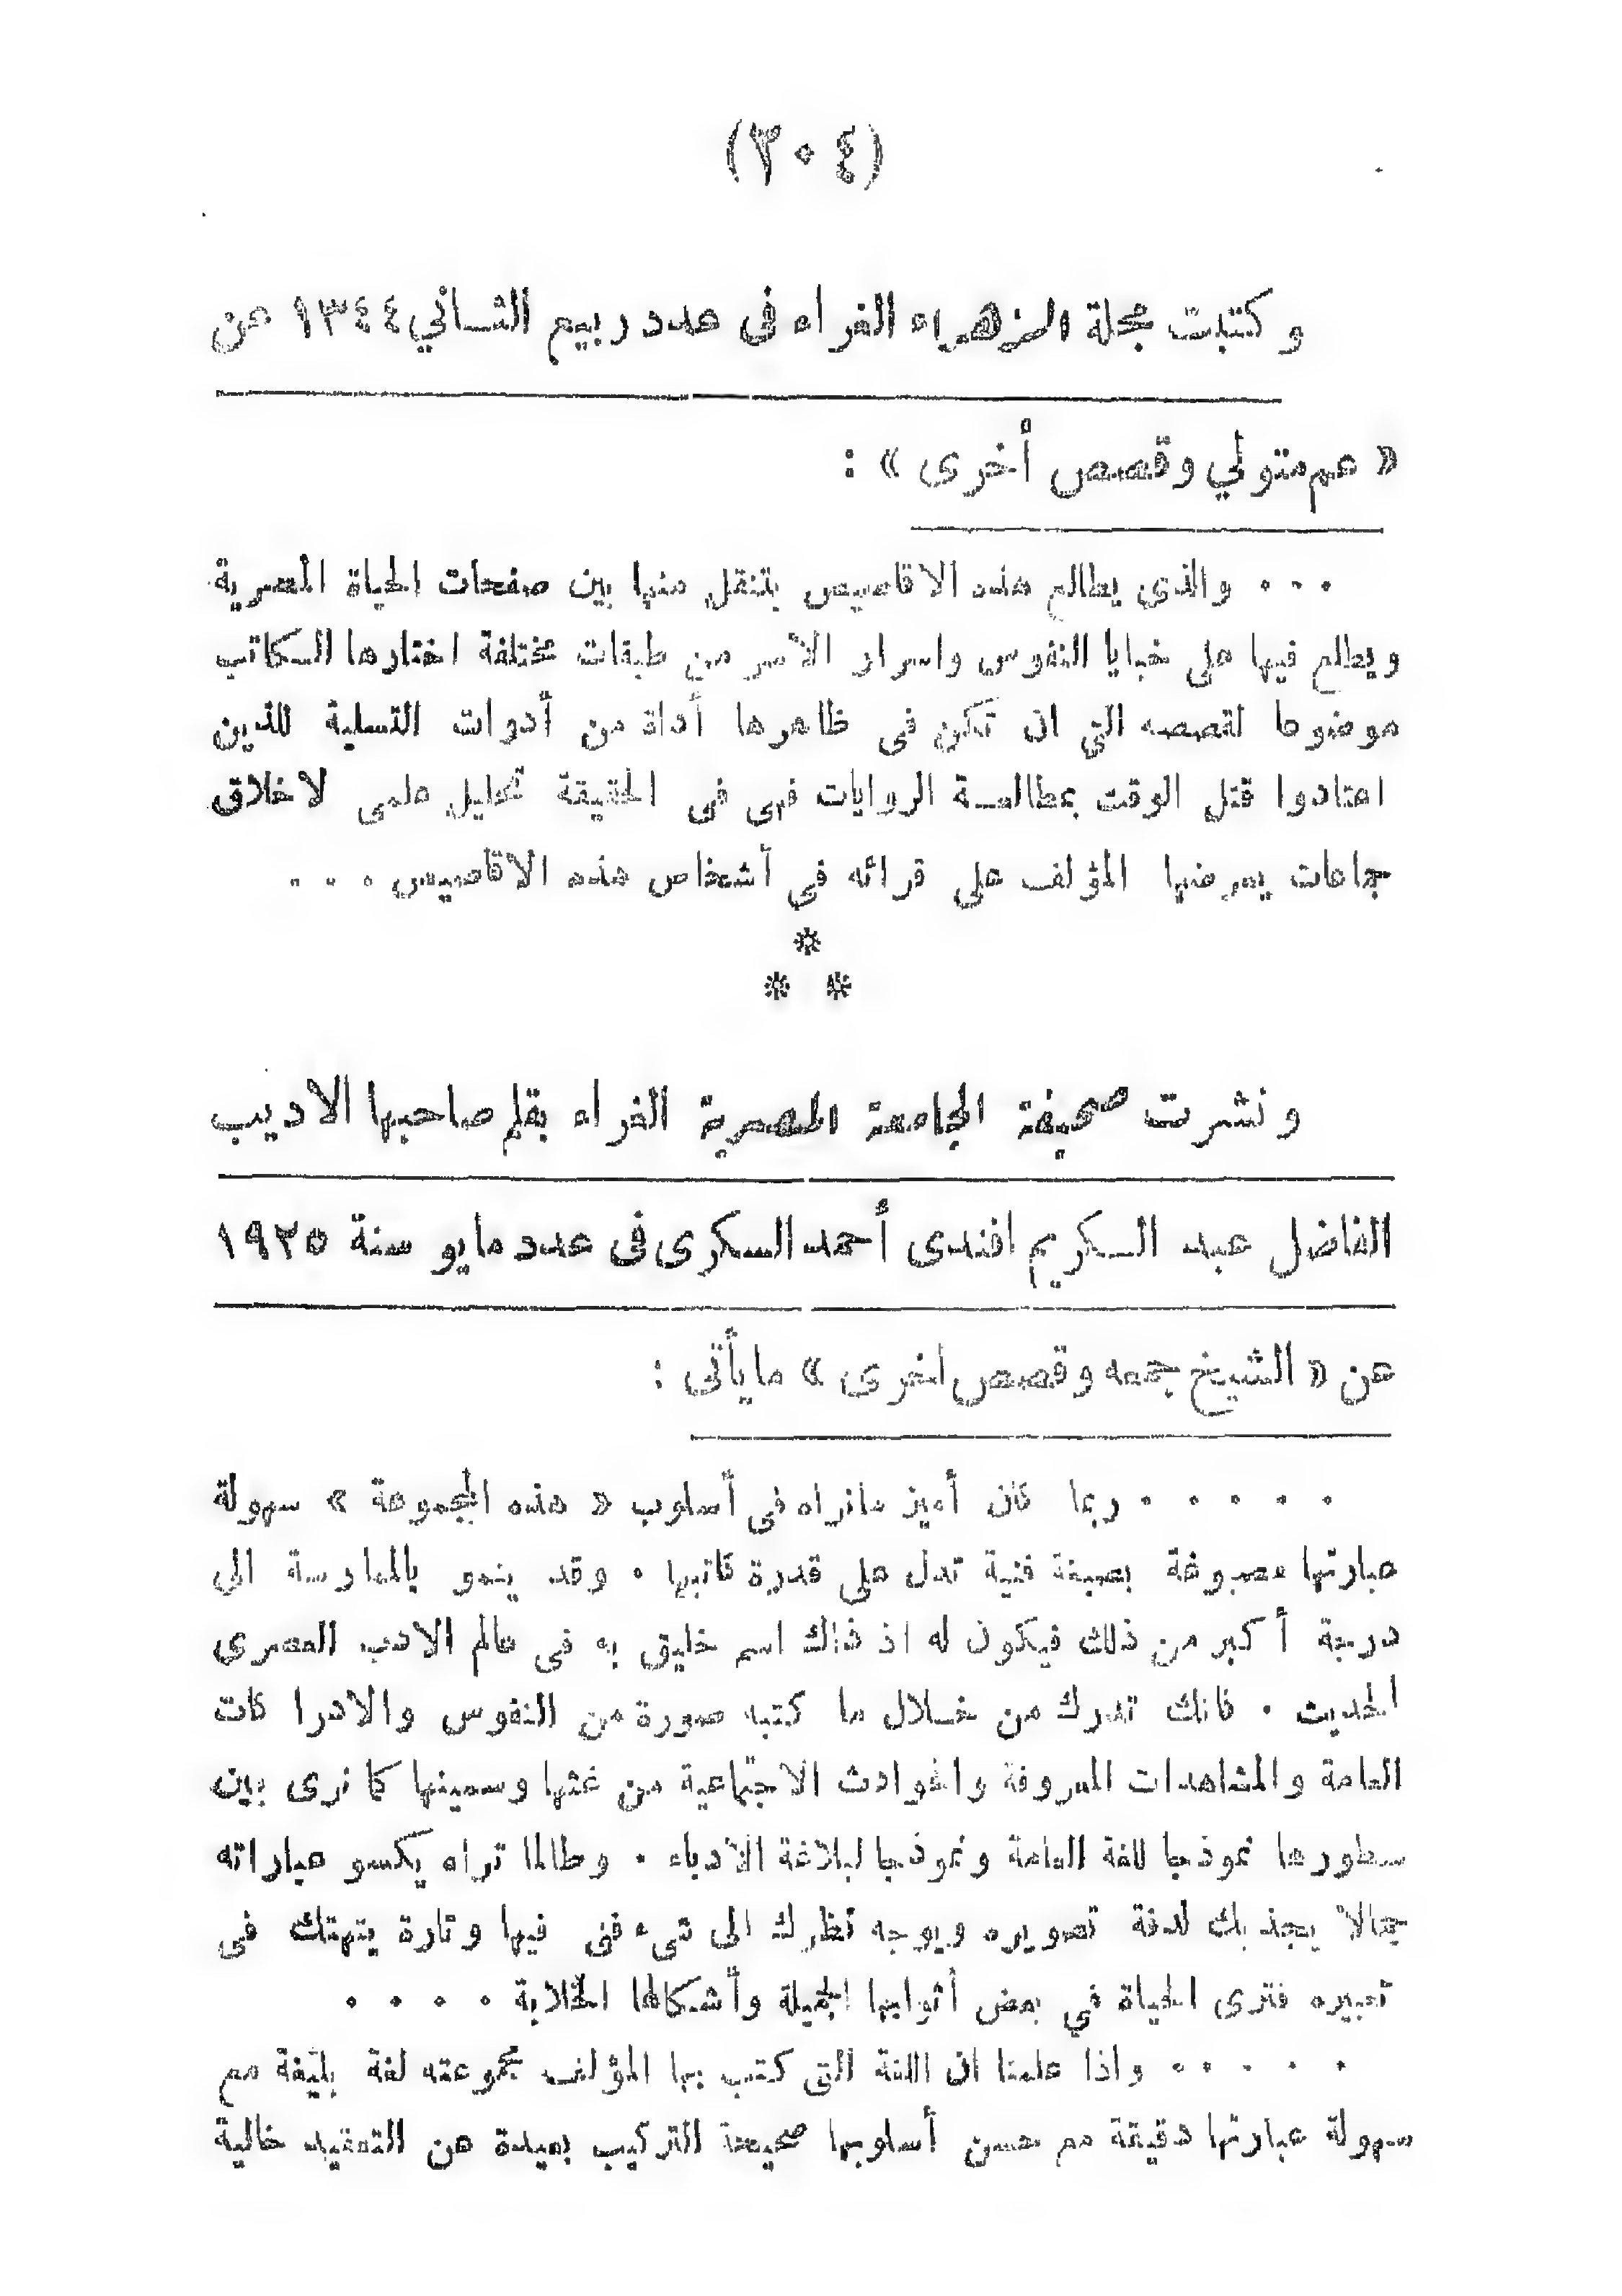 (٣٠٤)
وكتبت مجلة الزهراء الغراء فى عدد ربيع الثـاني ١٣٤٤ عن
« عم متولي وقصص أخرى » :
٠٠٠ والذى يطالع هذه الاقاصيص يتنقل منها بين صفحات الحياة المصرية
ويطلع فيها على خبايا النفوس واسرار الأسر من طبقات مختلفة اختارها الكاتب
موضوعا لقصصه التي ان تكن فى ظاهرها أداة من أدوات التسلية للذين
اعتادوا قتل الوقت بمطالعـة الروايات فهى فى الحقيقة تحليل علمى لاخلاق
جماعات يعرضها المؤلف على قرائه في أشخاص هذه الاقاصيص ٠ ٠ ٠
*
* *
ونشرت صحيفة الجامعة المصرية الغراء بقلم صاحبها الاديب
الفاضل عبد الكريم افندى أحمد السكرى فى عدد مايو سنة ١٩٢٥
عن « الشيخ جمعه وقصص اخرى » مايأتى :
٠ ٠ ٠ ٠ ٠ ربما كان أميز مانراه فى أسلوب « هذه المجموعة » سهولة
عبارتها مصبوغة بصبغة فنية تدل على قدرة كاتبها ٠ وقد ينمو بالممارسة الى
درجة أكبر من ذلك فيكون له اذ ذاك اسم خليق به فى عالم الادب المصرى
الحديث ٠ فانك تدرك من خـلال ما كتبه صورة من النفوس والادرا كات
العامة والمشاهدات المعروفة والحوادث الاجتماعية من غثها وسمينها كما نرى بين
سطورها نموذجا للغة العامة ونموذجا لبلاغة الأدباء ٠ وطالما تراه يكسو عباراته
جمالا يجذبك لدقة تصويره ويوجه نظرك الى شىء فنى فيها وتارة يتهتك فى
تعبيره فترى الحياة في بعض أثوابها الجميلة وأشكالها الخلابة ٠ ٠ ٠ ٠
٠ ٠ ٠ ٠ ٠ واذا علمنا ان اللغة التى كتب بها المؤلف مجموعته لغة بليغة مع
سهولة عبارتها دقيقة مع حسن أسلوبها صحيحة التركيب بعيدة عن التعقيد خالية